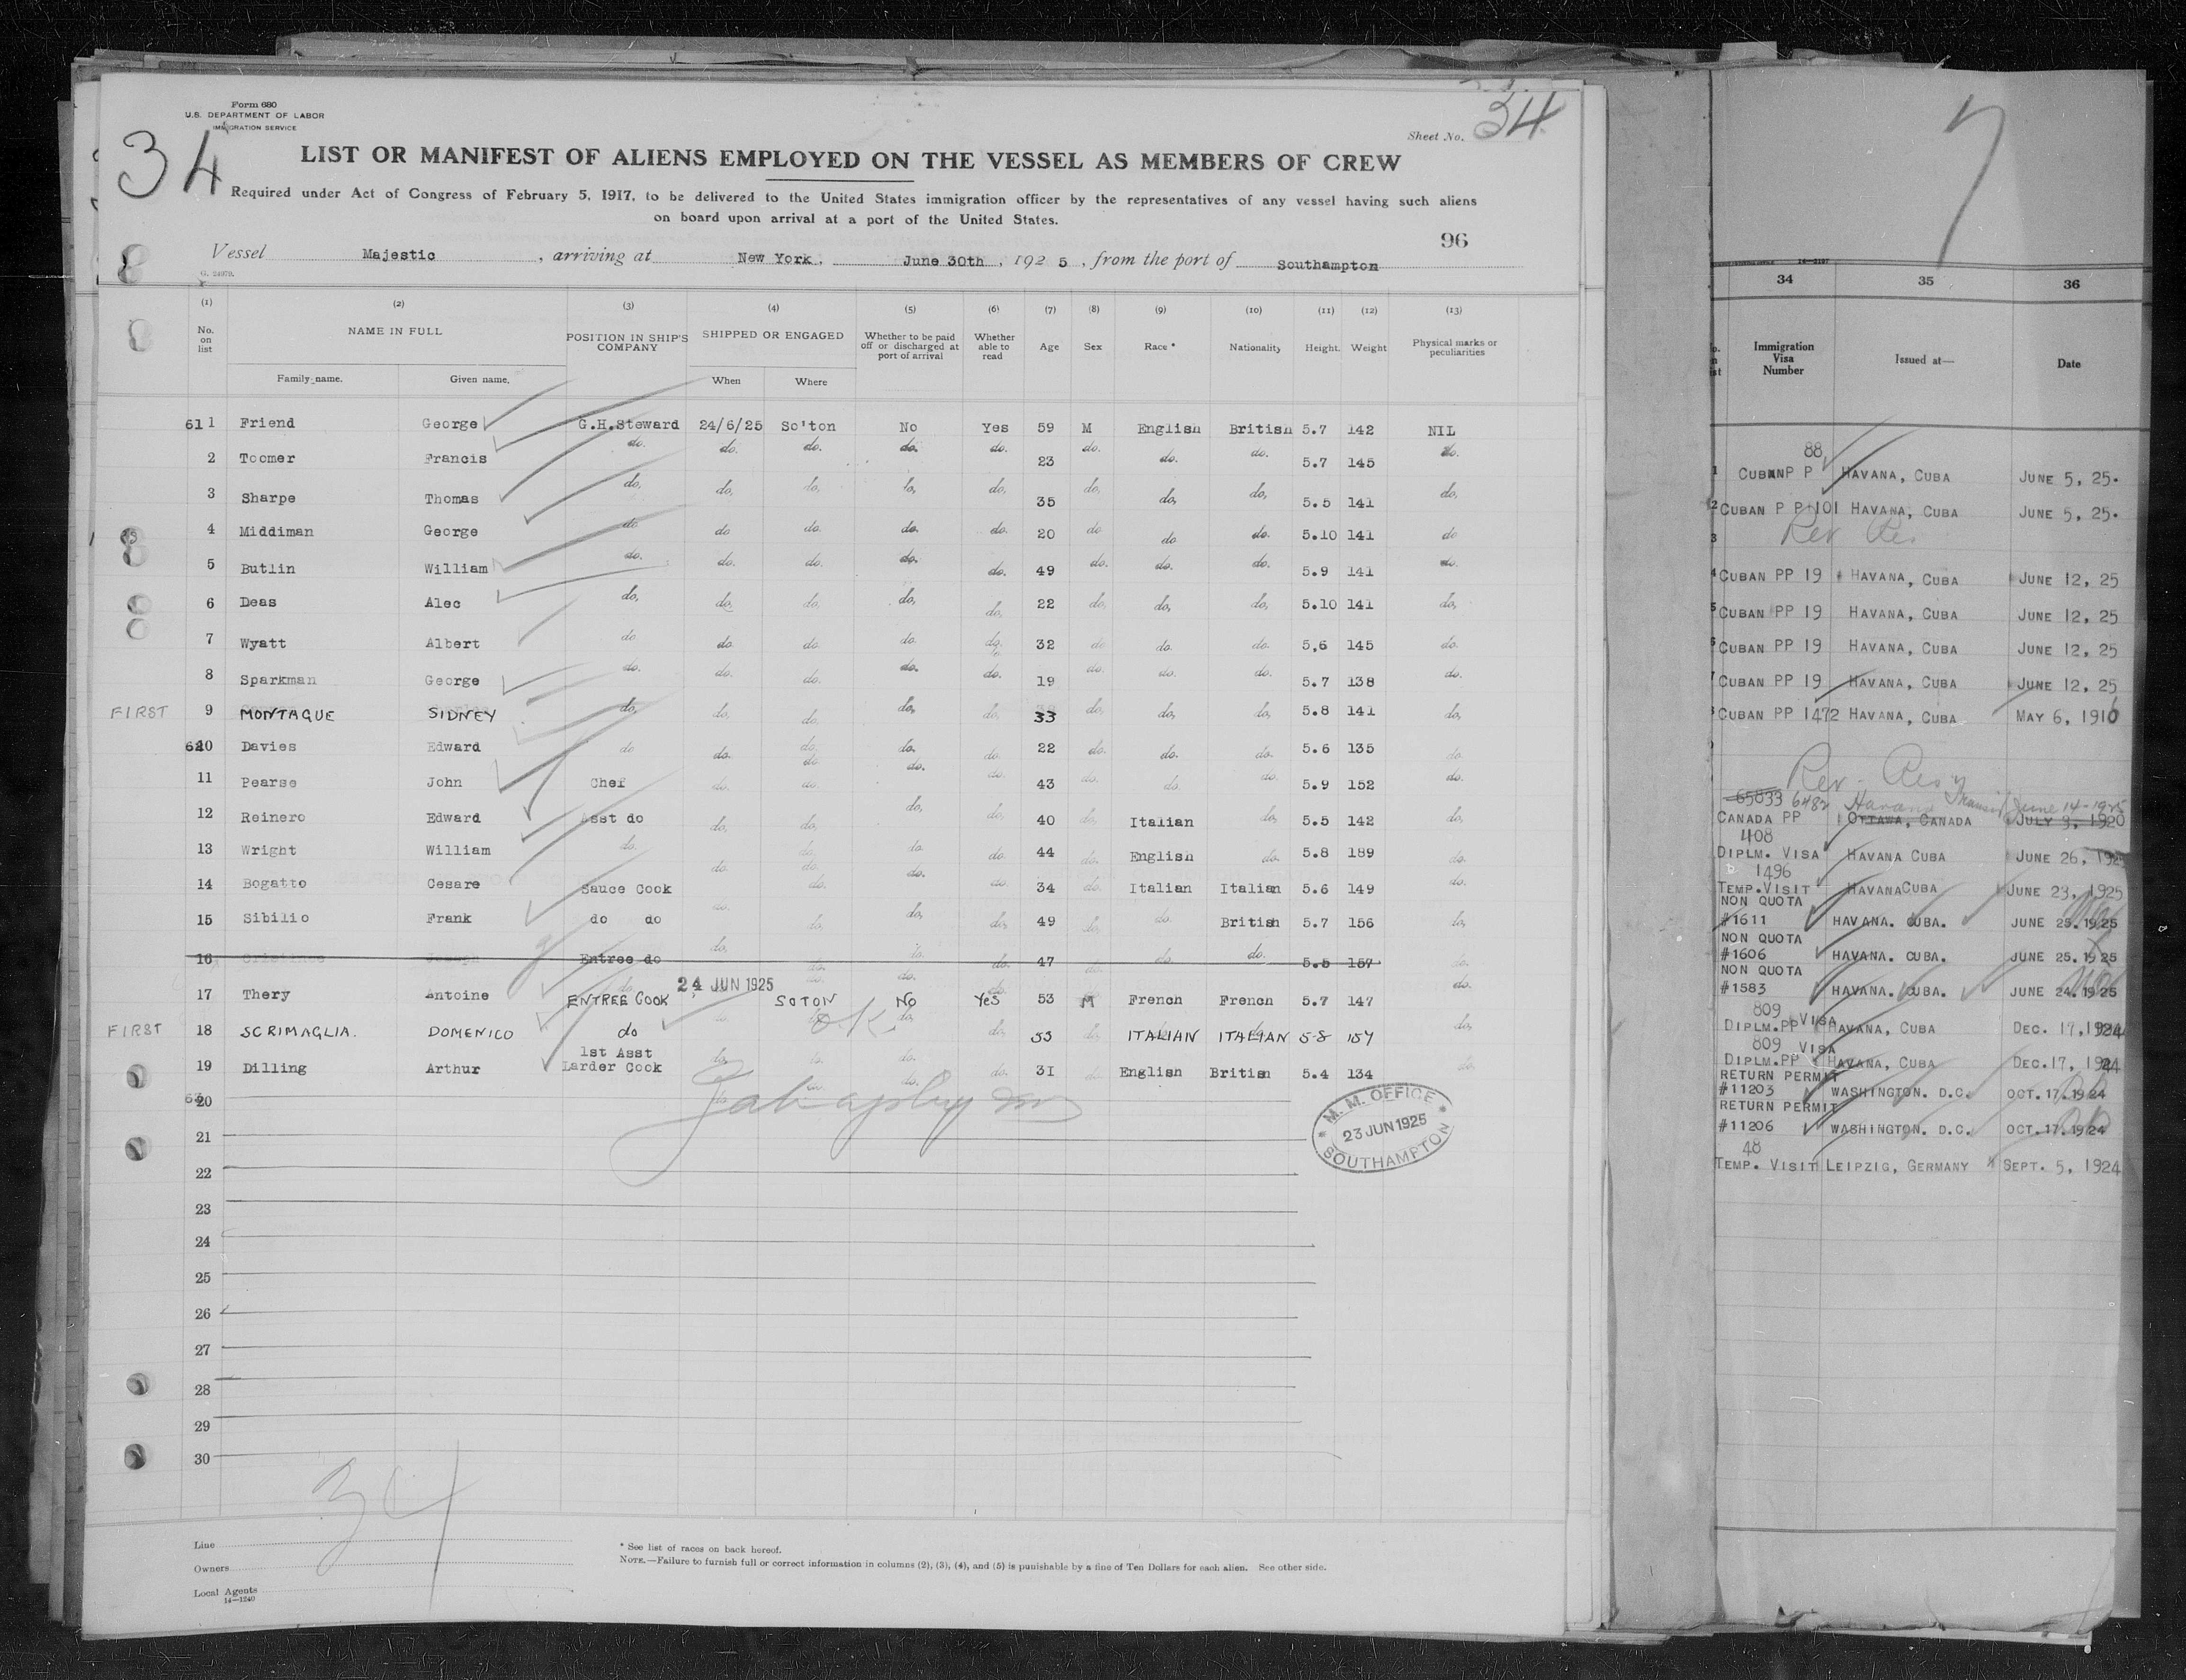 Form 680
U.S. DEPARTMENT OF LABOR
IMMIGRATION SERVICE
34
Sheet No. 34
LIST OR MANIFEST OF ALIENS EMPLOYED ON THE VESSEL AS MEMBERS OF CREW
Required under Act of Congress of February 5, 1917, to be delivered to the United States immigration officer by the representatives of any vessel having such aliens
on board upon arrival at a port of the United States.
96
Vessel Majestic, arriving at New York, June 30th, 1925, from the port of Southampton
G. 24979.
(1) (2) (3) (4) (5) (6) (7) (8) (9) (10) (11) (12) (13)
No. on list NAME IN FULL POSITION IN SHIP'S COMPANY SHIPPED OR ENGAGED Whether to be paid off or discharged at port of arrival Whether able to read Age Sex Race * Nationality Height. Weight Physical marks or peculiarities
Family name. Given name. When Where
611 Friend George G.H.Steward 24/6/25 So'ton No Yes 59 M English British 5.7 142 NIL
2 Toomer Francis do. do. do. do. do. 23 do. do. do. 5.7 145 do.
3 Sharpe Thomas do, do, do, do, do, 35 do, do, do, 5.5 141 do,
4 Middiman George do do do. do. do. 20 do do do. 5.10 141 do
5 Butlin William do. do. do. do. do. 49 do. do. do. 5.9 141 do.
6 Deas Alec do, do, do, do, do, 22 do, do, do, 5.10 141 do,
7 Wyatt Albert do do. do. do. do. 32 do do. do. 5,6 145 do.
8 Sparkman George do. do. do. do. do. 19 do. do. do. 5.7 138 do.
FIRST 9 MONTAGUE SIDNEY do, do, do, do, do, 33 do, do, do, 5.8 141 do,
6210 Davies Edward do do. do. do. do. 22 do. do. do. 5.6 135 do.
11 Pearse John Chef do. do. do. do. 43 do. do do. 5.9 152 do.
12 Reinero Edward Asst do do, do, do, do, 40 do, Italian do, 5.5 142 do,
13 Wright William do. do. do. do. 44 do. English do. 5.8 189 do.
14 Bogatto Cesare Sauce Cook do. do. do. do. 34 do. Italian Italian 5.6 149 do.
15 Sibilio Frank do do do. do. do, do, 49 do, do. British 5.7 156 do,
16 Entree do do, do. do. do. 47 do. do. do. 5.5 157 do.
17 Thery Antoine ENTREE COOK 24 JUN 1925 SOTON No Yes 53 M French French 5.7 147 do.
OK
FIRST 18 SCRIMAGLIA. DOMENICO do do, do, 33 do, ITALIAN ITALIAN 5-8 157 do,
19 Dilling Arthur 1st Asst Larder Cook do. do. do. do. 31 do English British 5.4 134 do.
20
M. M. OFFICE
23 JUN 1925
SOUTHAMPTON
21
22
23
24
25
26
27
28
29
30
34
Line
Owners
Local Agents
14—1240
* See list of races on back hereof.
NOTE.—Failure to furnish full or correct information in columns (2), (3), (4), and (5) is punishable by a fine of Ten Dollars for each alien. See other side.
7
34 35 36
Immigration Visa Number Issued at— Date
88
CUBAN P P HAVANA, CUBA JUNE 5, 25.
CUBAN P P 101 HAVANA, CUBA JUNE 5, 25.
Rev Res
CUBAN PP 19 HAVANA, CUBA JUNE 12, 25
CUBAN PP 19 HAVANA, CUBA JUNE 12, 25
CUBAN PP 19 HAVANA, CUBA JUNE 12, 25
CUBAN PP 19 HAVANA, CUBA JUNE 12, 25
CUBAN PP 1472 HAVANA, CUBA MAY 6, 1910
Rev - Res
65833 6482 Havana Transit June 14-1925
CANADA PP OTTAWA, CANADA JULY 9, 1920
408
DIPLM. VISA HAVANA CUBA JUNE 26, 1925
1496
TEMP. VISIT HAVANA CUBA JUNE 23, 1925
NON QUOTA
#1611 HAVANA. CUBA. JUNE 25. 1925
NON QUOTA
#1606 HAVANA. CUBA. JUNE 25. 1925
NON QUOTA
#1583 HAVANA. CUBA. JUNE 24. 1925
809
DIPLM.PP VISA HAVANA, CUBA DEC. 17, 1924
809
DIPLM.PP VISA HAVANA, CUBA DEC. 17, 1924
RETURN PERMIT
#11203 WASHINGTON. D.C. OCT. 17. 1924
RETURN PERMIT
#11206 WASHINGTON. D.C. OCT. 17. 1924
48
TEMP. VISIT LEIPZIG, GERMANY SEPT. 5, 1924